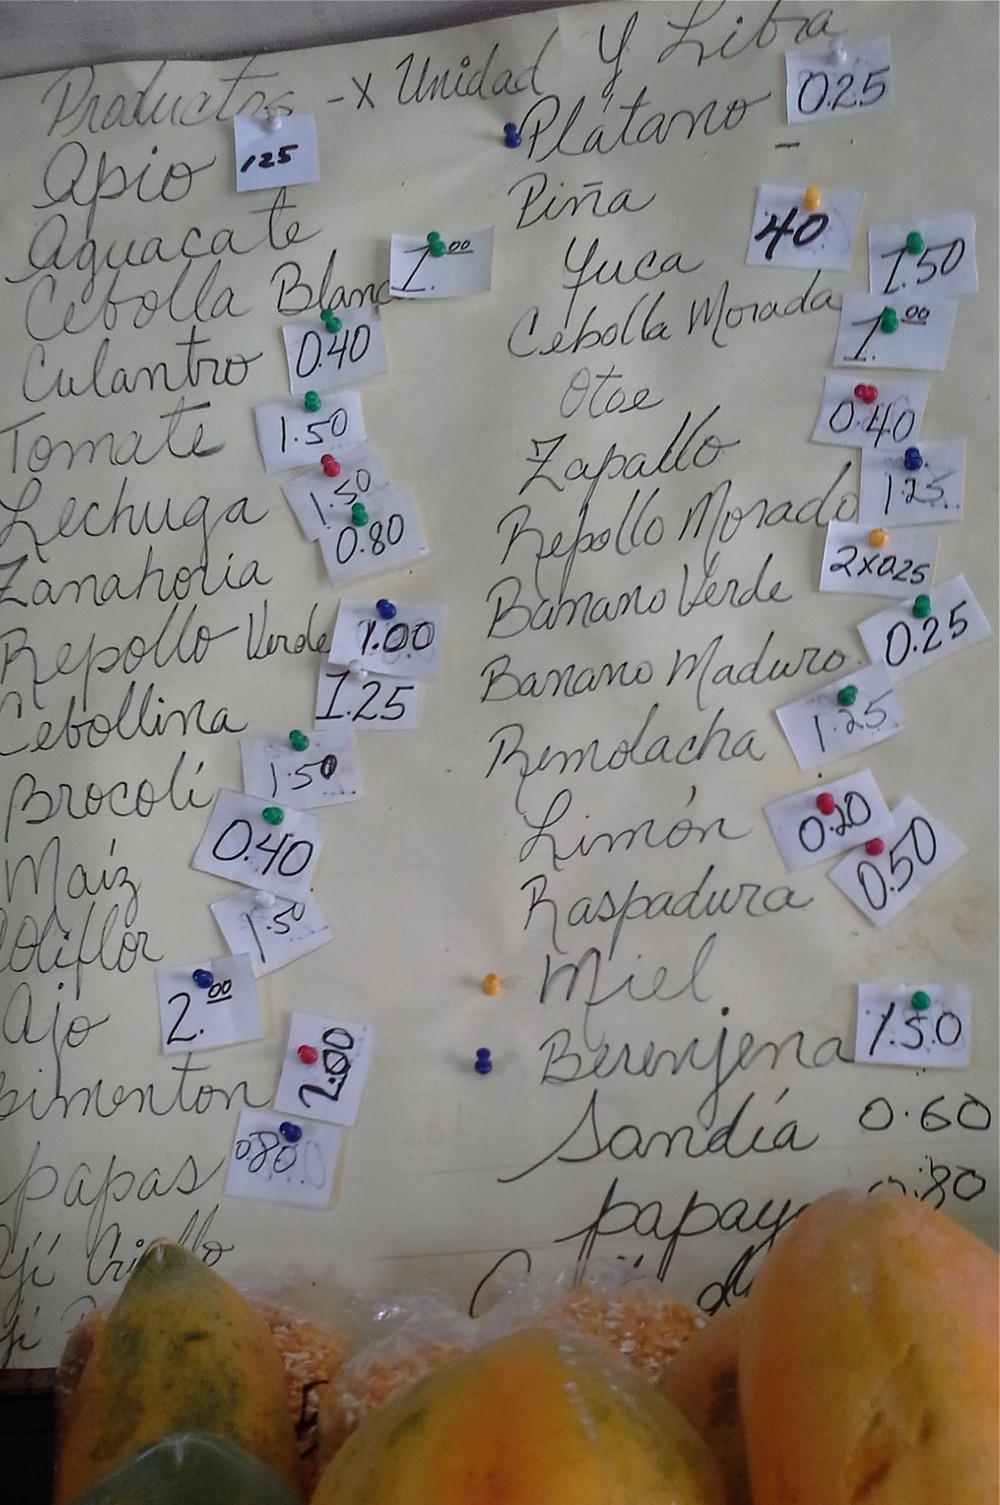 Productos - x Unidad y Libra
Apio 125
Aguacate
Cebolla Blanc 1.00
Culantro 0.40
Tomate 1.50
Lechuga 1.50
Zanahoria 0.80
Repollo Verde 1.00
Cebollina 1.25
Brocolí 1.50
Maíz 0.40
Coliflor 1.50
Ajo 2.00
Pimenton 2.00
papas 0.80
ají Criollo
ají
Plátano 0.25
Piña -
Yuca 40
Cebolla Morada 1.50
Otoe 1.00
Zapallo 0.40
Repollo Morado 1.25
Banano Verde 2x0.25
Banano Maduro 0.25
Remolacha 1.25
Limón 0.20
Raspadura 0.50
Miel
Berenjena 1.50
Sandía 0.60
papaya 0.80